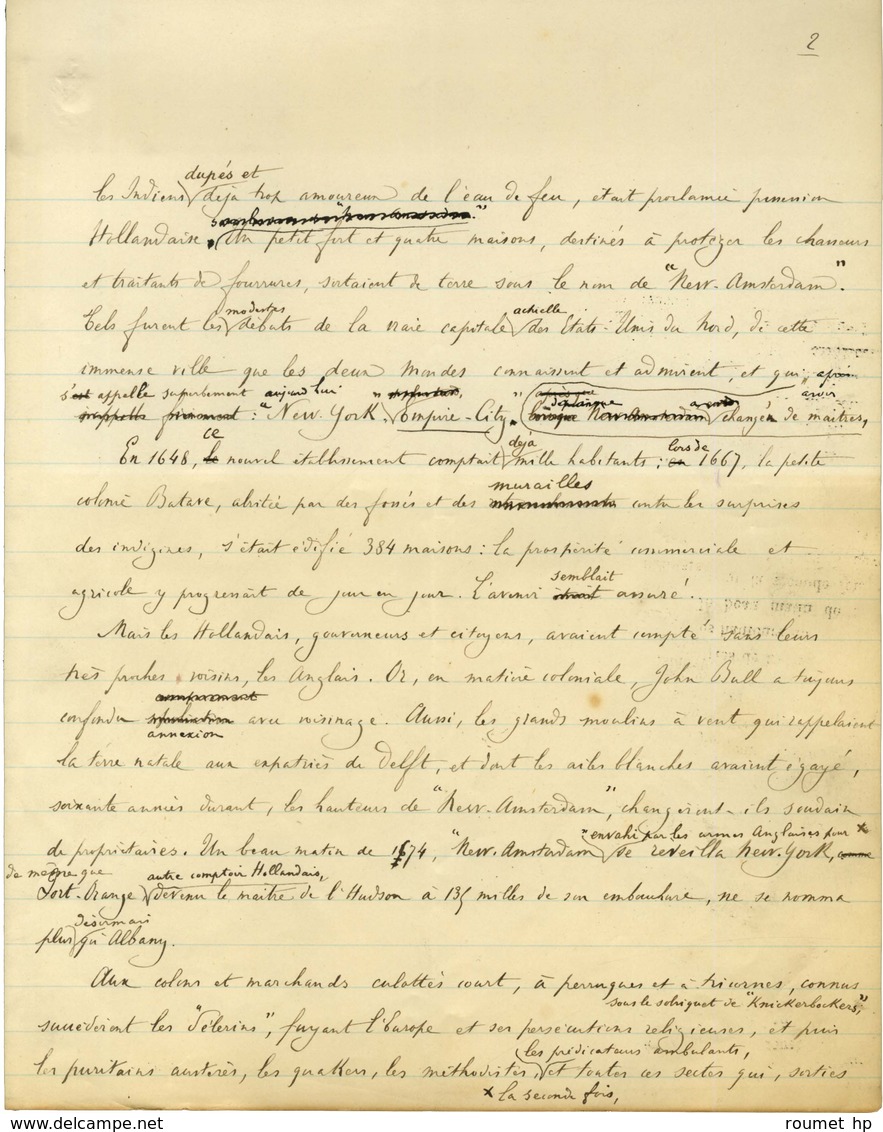 2
dupés et
les Indiens déjà trop amoureux de l'eau de feu, était proclamée possession
Hollandaise. Un petit fort et quatre maisons, destinés à protéger les chasseurs
et traitants de fourrures, sortaient de terre sous le nom de "New-Amsterdam".
modestes actuelle
Tels furent les débuts de la vraie capitale des Etats-Unis du Nord, de cette
immense ville que les deux Mondes connaissent et admirent, et qui, après
s'est appelle superbement aujourd'hui avoir
: "New-York", "Empire-City", New-Amsterdam changé de maîtres,
ce déjà lors de
En 1648, le nouvel établissement comptait mille habitants; en 1667, la petite
murailles
colonie Batave, abritée par des fossés et des contre les surprises
des indigènes, s'était édifié 384 maisons: la prospérité commerciale et
semblait
agricole y progressait de jour en jour. L'avenir était assuré.
Mais les Hollandais, gouverneurs et citoyens, avaient compté sans leurs
très proches voisins, les Anglais. Or, en matière coloniale, John Bull a toujours
confondu avec voisinage. Aussi, les grands moulins à vent qui rappelaient
annexion
la terre natale aux expatriés de Delft, et dont les ailes blanches avaient égayé,
soixante années durant, les hauteurs de "New-Amsterdam", changèrent-ils soudain
envahi par les armes Anglaises pour x
de propriétaires. Un beau matin de 1674, "New-Amsterdam" se réveilla New-York, comme
de même que autre comptoir Hollandais,
Fort-Orange devenu le maître de l'Hudson à 135 milles de son embouchure, ne se nomma
désormais
plus qu'Albany.
Aux colons et marchands culottés court, à perruques et à tricornes, connus
sous le sobriquet de "Knickerbockers",
succédèrent les "Pèlerins", fuyant l'Europe et ses persécutions religieuses, et puis
les prédicateurs ambulants,
les puritains austères, les quakers, les méthodistes, et toutes ces sectes qui, sorties
x la seconde fois,
roumet hp